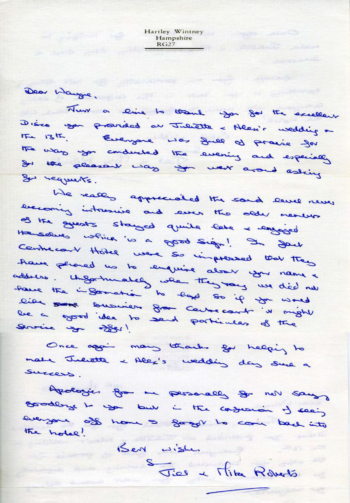 Hartley Wintney
Hampshire
RG27
Dear Wayne,
Just a line to thank you for the excellent
Disco you provided at Juliette & Alex's wedding on
the 13th. Everyone was full of praise for
the way you conducted the evening and especially
for the pleasant way you went around asking
for requests.
We really appreciated the sound level never
becoming intrusive and even the older members
of the guests stayed quite late & enjoyed
themselves which is a good sign! In fact
Centrecourt Hotel were so impressed that they
have phoned us to enquire about your name &
address. Unfortunately when they rang we did not
have the information to hand so if you would
like business from Centrecourt it might
be a good idea to send particulars of the
service you offer!
Once again many thanks for helping to
make Juliette & Alex's wedding day such a
success.
Apologies from me personally for not saying
goodbye to you but in the confusion of seeing
everyone off home I forgot to come back into
the hotel!
Best wishes
Jill & Mike Roberts